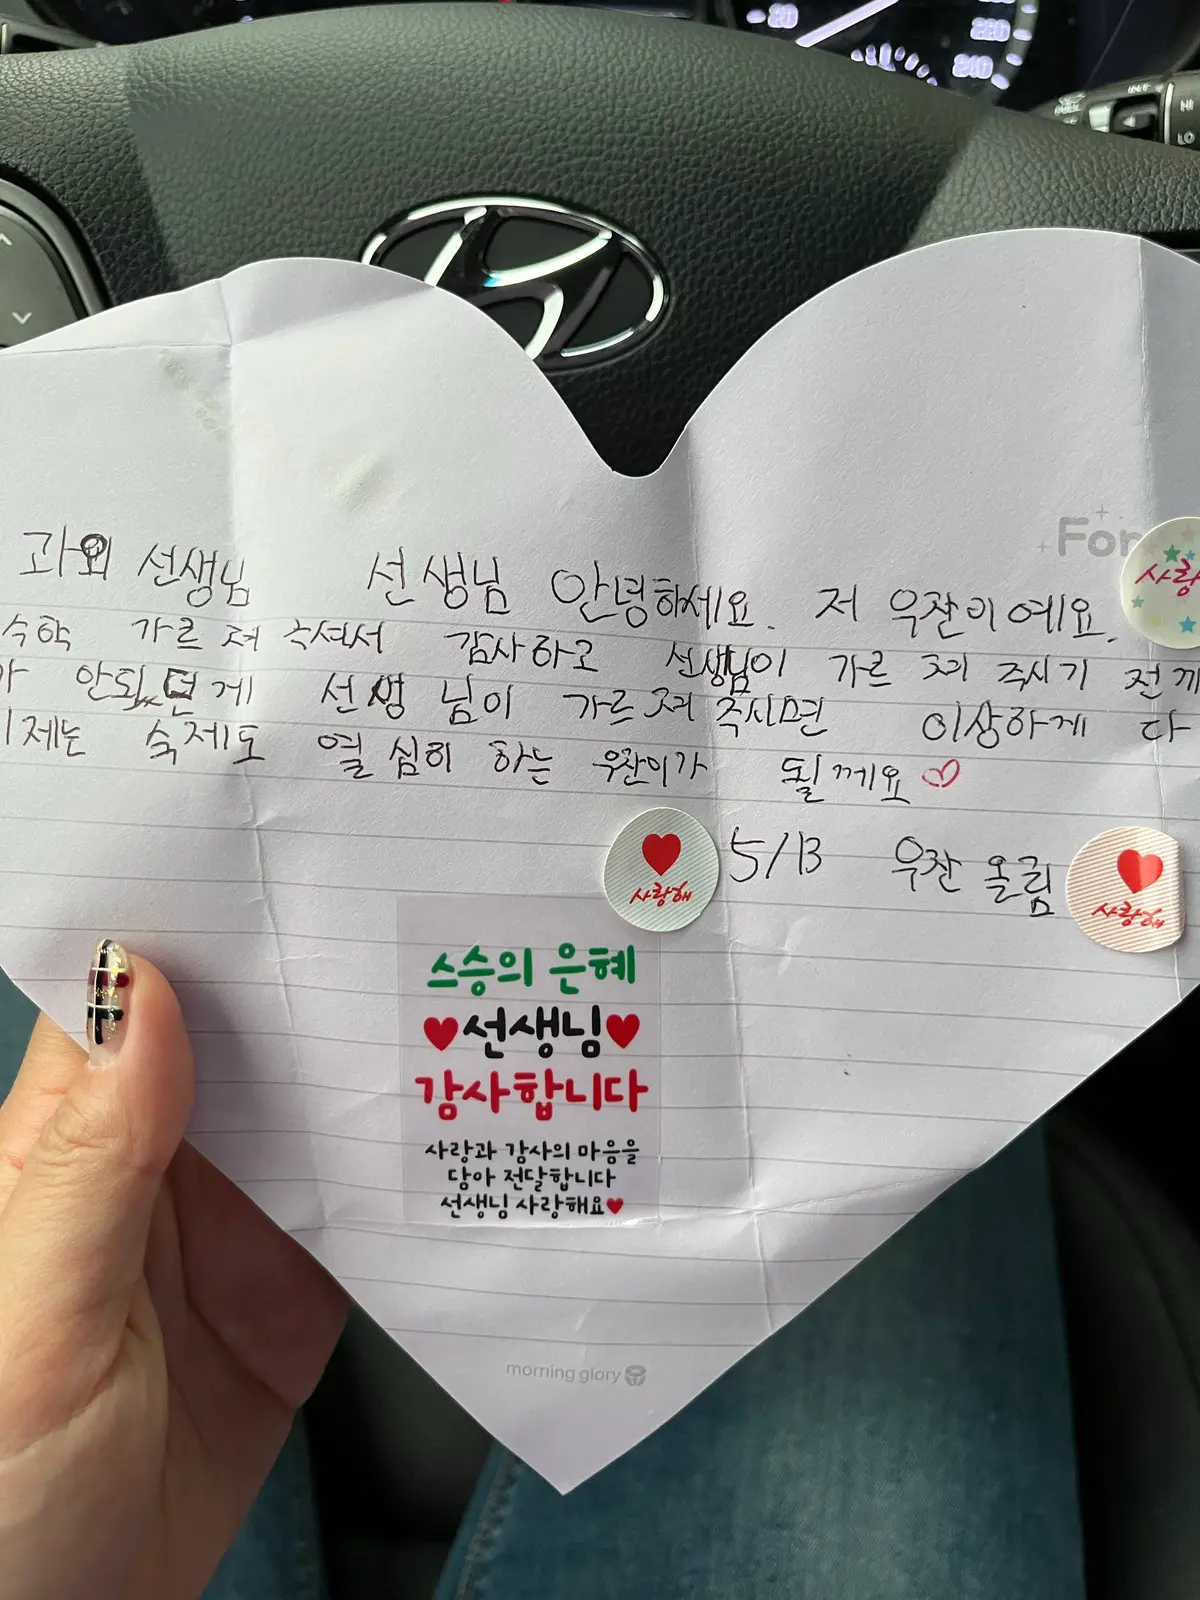 80
220
240
HI
LO
For
사랑
과외 선생님 선생님 안녕하세요. 저 우잔이 예요.
수학 가르 져 주셔서 감사하고 선생님이 가르 져 주시기 전까
가 안되던게 선생님이 가르 져 주시면 이상하게 다
이제는 숙제도 열심히 하는 우잔이가 될께요
5/13 우잔 올림
사랑해
사랑해
스승의 은혜
선생님
감사합니다
사랑과 감사의 마음을
담아 전달합니다
선생님 사랑해요
morning glory